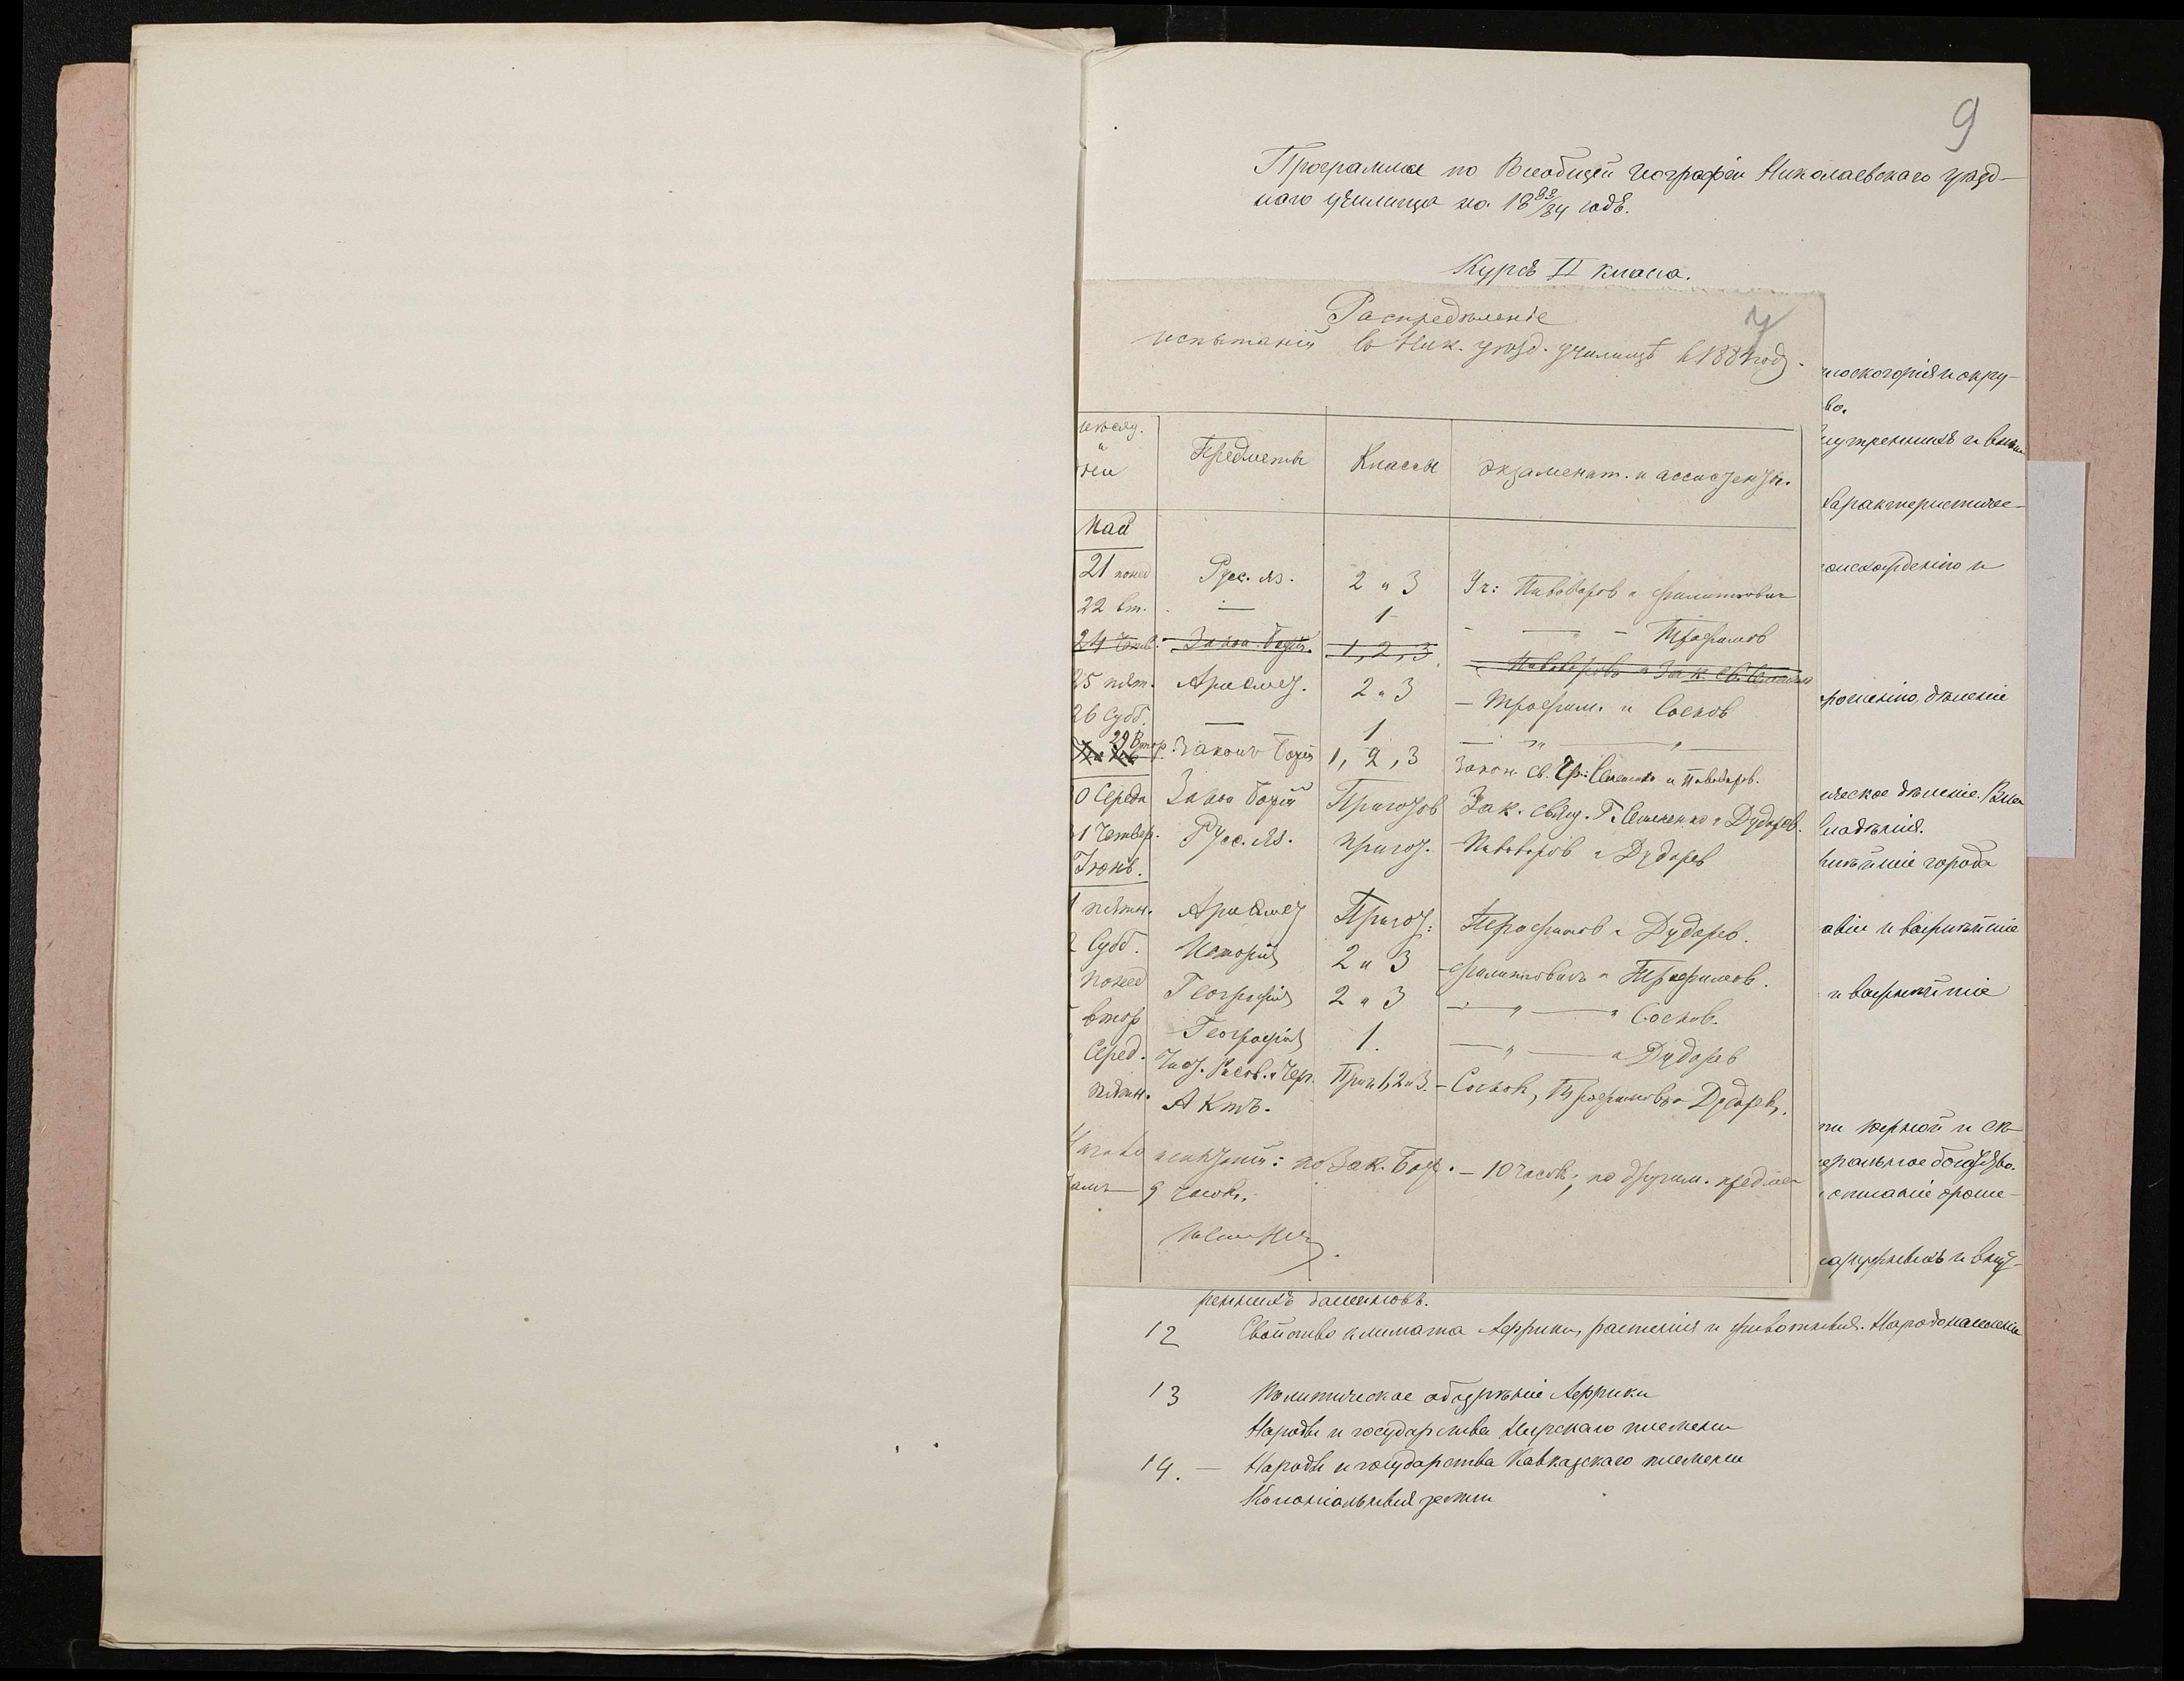 9
Программа по Всеобщей Географіи Николаевскаго уѣзд-
наго училища на 18 83/84 годъ.
Курсъ II класа.
Распредѣленіе
испытаній в Ник. уѣзд. училищѣ в 1884 году.
Предметы Классы экзаменат. и ассистенты.
Май
21 понед Рус. яз. 2 и 3 Уч: Пивоваров и Филипович
22 вт. — 1 — Трофимов
24 Четв. Закон Божій. 1, 2, 3 Пивоваровъ и Зак. св.
25 пят. Ариѳмет. 2 и 3 — Трофим. и Соснов
26 Субб. — 1 — „ — „ —
29 Втор. Законъ Божій 1, 2, 3 Закон. св. Гр: Семененко и Пивоваров.
0 Середа Закон Божій Пригот Зак. свящ. Г. Семененко и Дударев.
1 Четвер. Рус. яз. Пригот. Пивоваров и Дударев
Іюнь.
1 пятн. Ариѳмет Пригот: Трофимов и Дударев.
2 Субб. Исторія 2 и 3 Филиповичъ и Трофимов.
понед Географія 2 и 3 — „ — „ Соснов.
втор Географія 1. — „ — и Дударев
Серед. Чист. Рисов. и Чер. Приг. 1, 2 и 3. — Соснов, Трофимовъ и Дударев.
пятн. Актъ.
Начало испытаній: по Зак. Бож. — 10 часов, по другим. предме
там — 9 часов.
плоскогорія и окру-
во.
внутреннихъ и внѣш
характеристиче-
происхожденію и
орошенію, дѣленіе
ическое дѣленіе. Вла
владѣнія.
нѣйшіе города
авіи и важнѣйшіе
и важнѣйшіе
ти черной и ск
еральное богатство.
описаніе ороше-
наружныхъ и внут-
реннихъ бассейновъ.
12 Свойство климата Африки, растенія и животныя. Народонаселеніе
13 Политическое обозрѣніе Африки
Народы и государства Негрскаго племени
14. — Народы и государства Кавказскаго племени
Колоніальныя земли